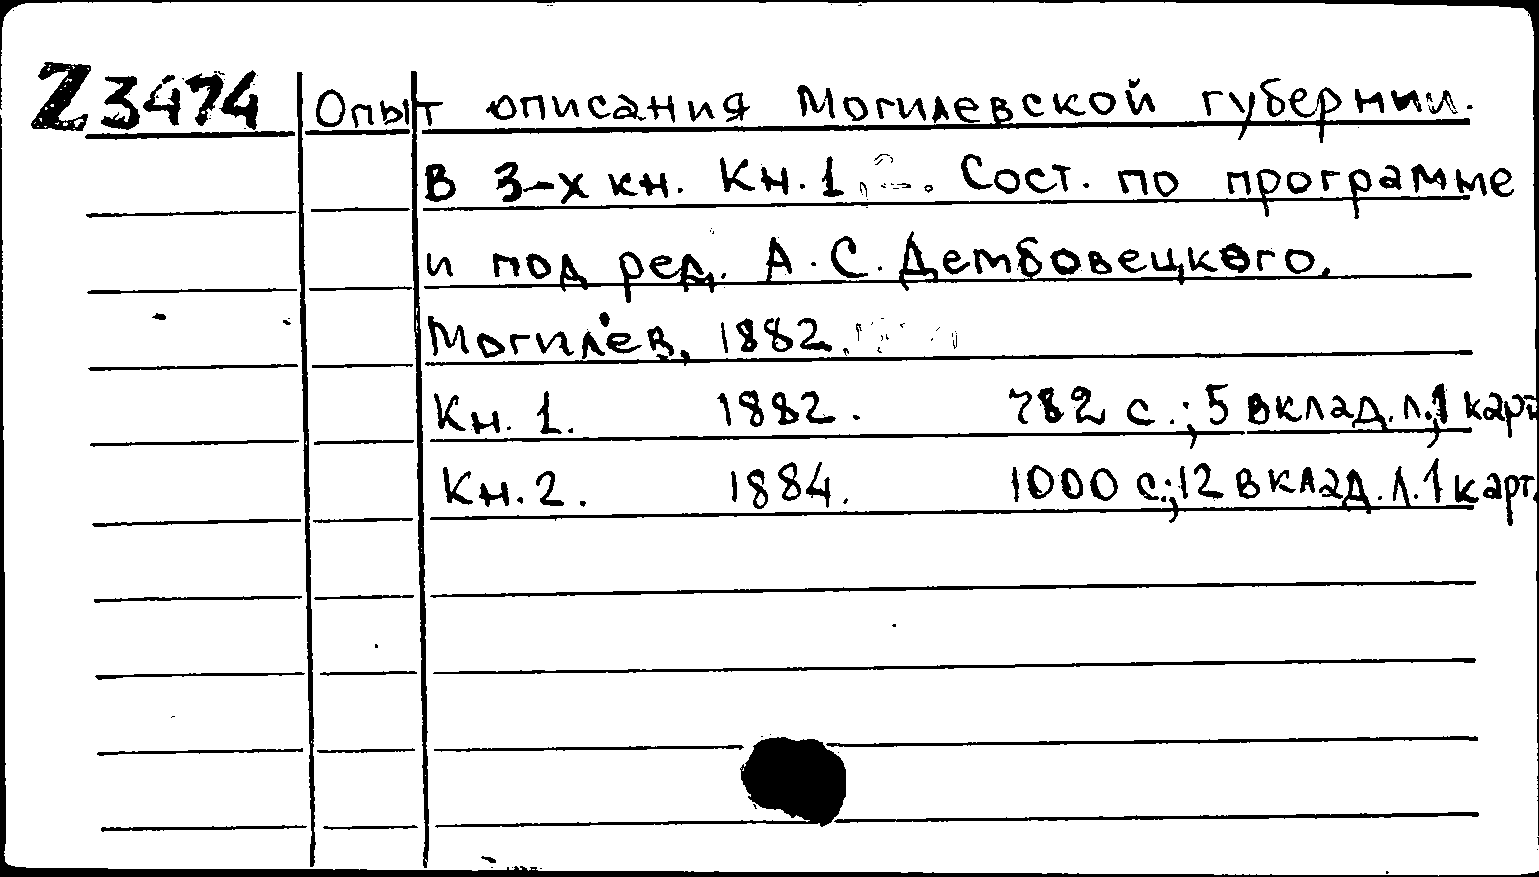 Z3474 Опыт описания Могилевской губернии.
В 3-х кн. Кн. 1. Сост. по программе
и под ред. А.С. Дембовецкого.
Могилёв, 1882.
Кн. 1. 1882. 782 с.; 5 вклад. л.; 1 карт
Кн. 2. 1884. 1000 с.; 12 вклад. л. 1 карт.